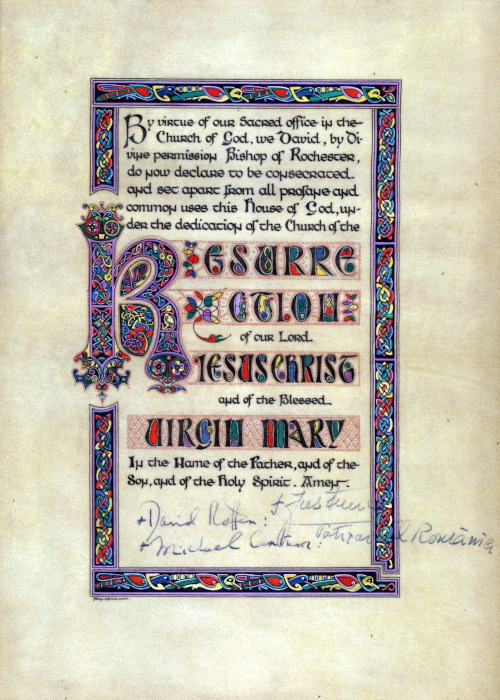 By virtue of our Sacred office in the
Church of God, we David, by Di-
vine permission Bishop of Rochester,
do now declare to be consecrated
and set apart from all profane and
common uses this House of God, un-
der the dedication of the Church of the
RESURRE
CTION
of our Lord
JESUS CHRIST
and of the Blessed
VIRGIN MARY
In the Name of the Father, and of the
Son, and of the Holy Spirit. Amen.
+ David Roffen:
+ Michael Cantuar:
+ Justinian
Patriarhul României